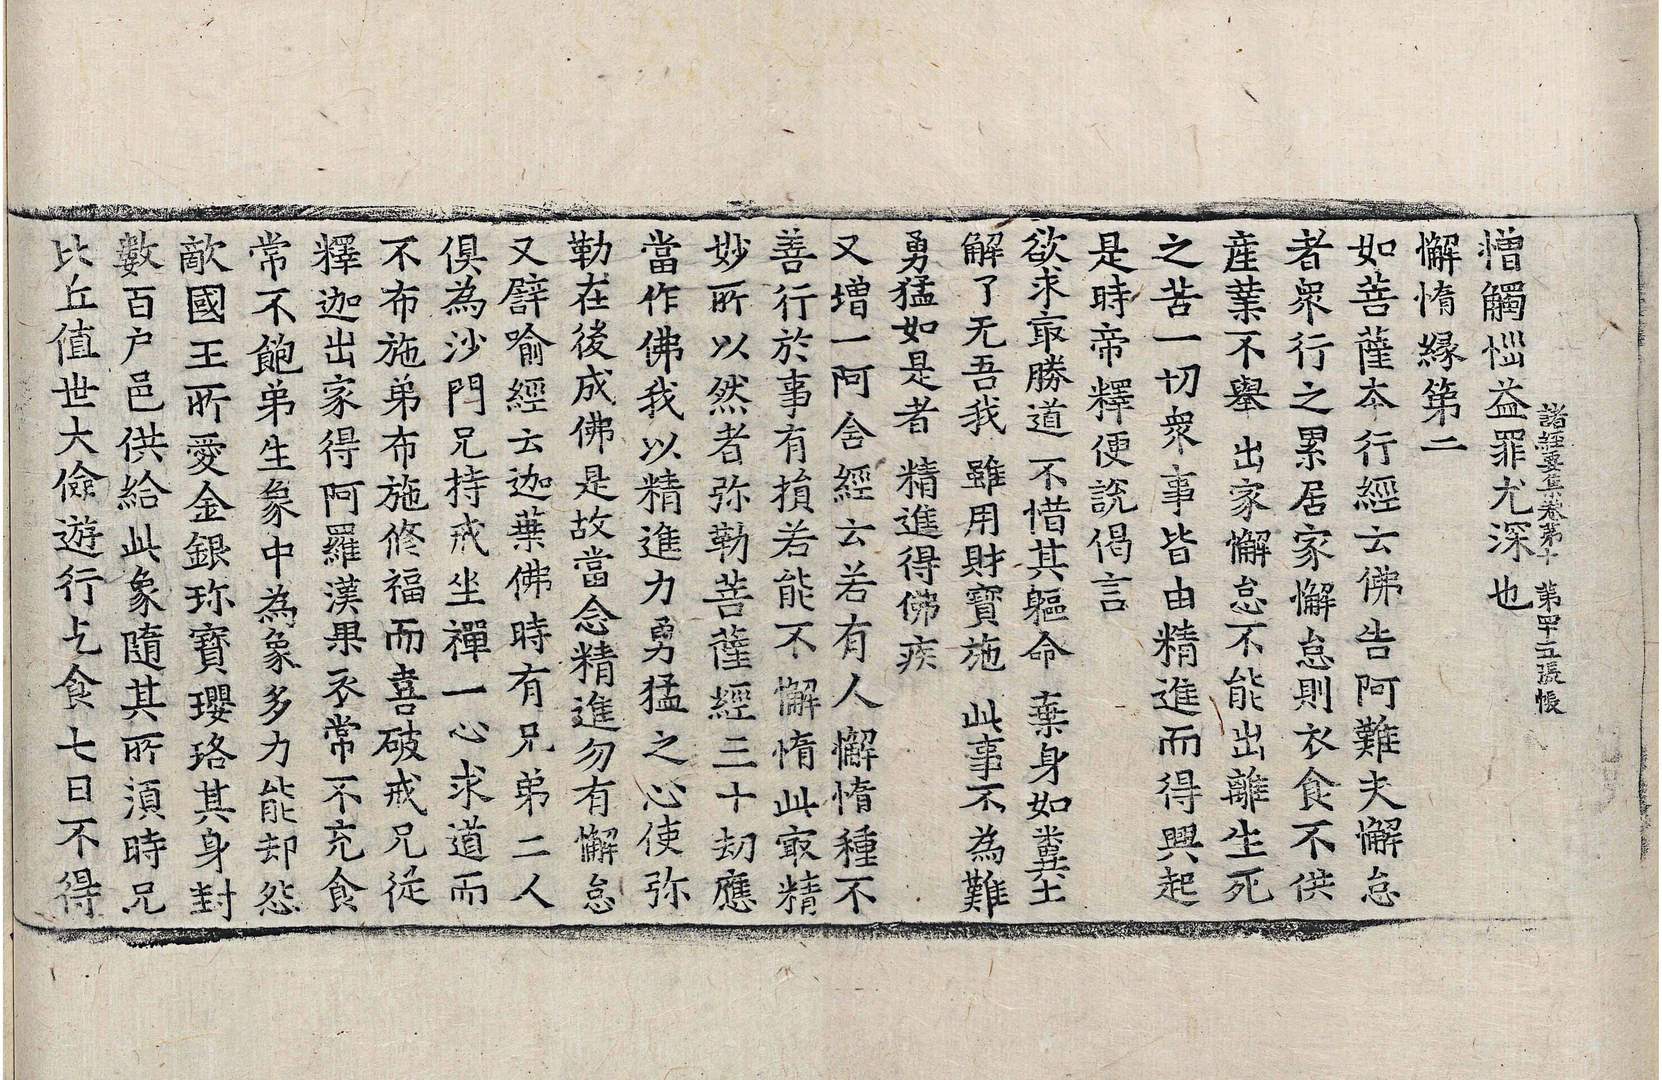 諸經要集卷第十　第四十五張　悵
憎觸惱益罪尤深也
懈惰緣第二
如菩薩本行經云佛告阿難夫懈怠
者衆行之累居家懈怠則衣食不供
產業不舉出家懈怠不能出離生死
之苦一切衆事皆由精進而得興起
是時帝釋便說偈言
欲求㝡勝道　不惜其軀命　棄身如糞土
解了无吾我　雖用財寶施　此事不為難
勇猛如是者　精進得佛疾
又增一阿含經云若有人懈惰種不
善行於事有損若能不懈惰此㝡精
妙所以然者弥勒菩薩經三十劫應
當作佛我以精進力勇猛之心使弥
勒在後成佛是故當念精進勿有懈怠
又譬喻經云迦葉佛時有兄弟二人
俱為沙門兄持戒坐禪一心求道而
不布施弟布施修福而喜破戒兄從
釋迦出家得阿羅漢果衣常不充食
常不飽弟生象中為象多力能却怨
敵國王所愛金銀珎寶瓔珞其身封
數百户邑供給此象隨其所須時兄
比丘值世大儉遊行乞食七日不得